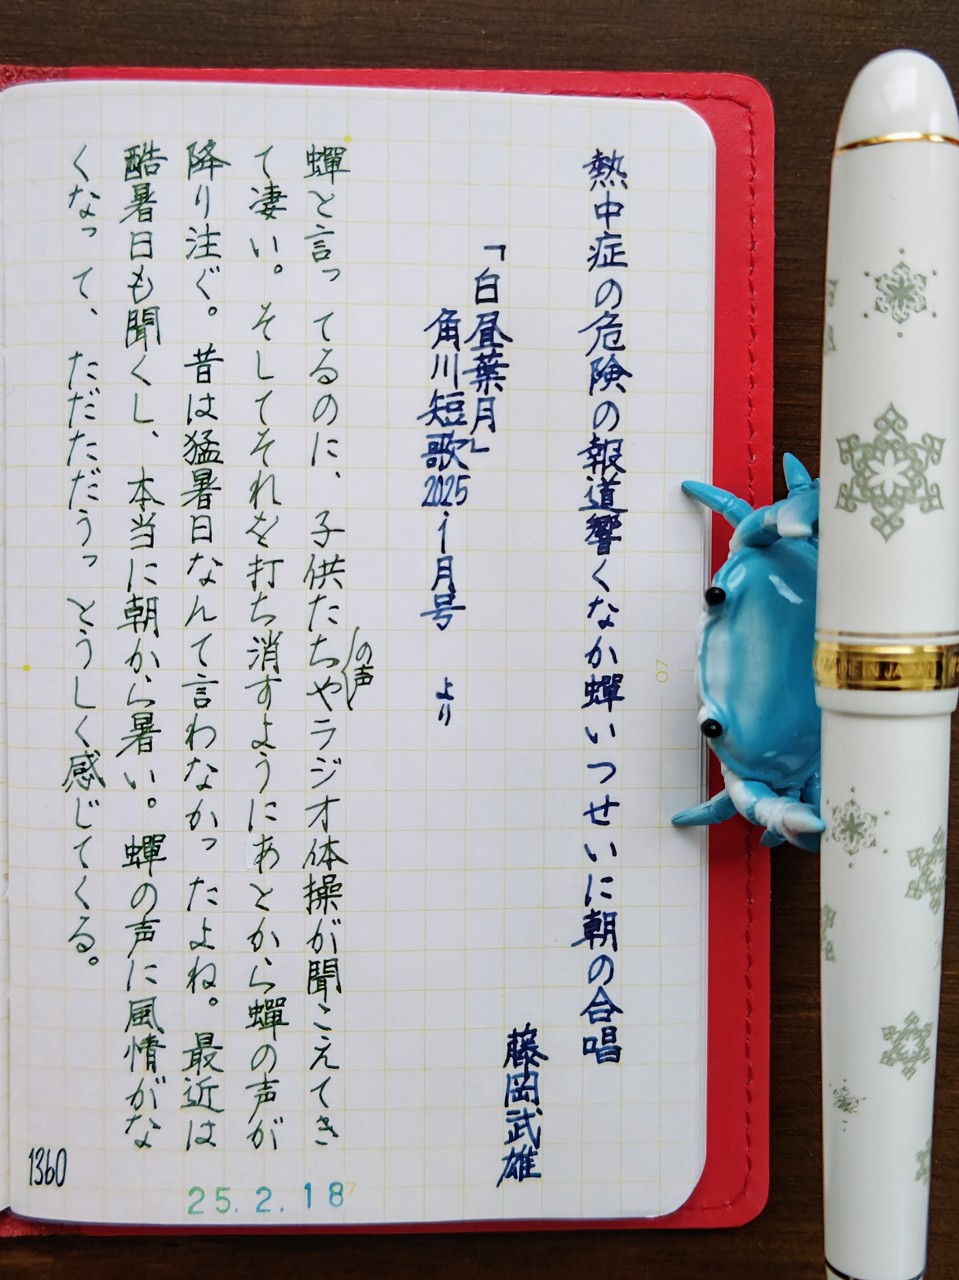 熱中症の危険の報道響くなか蟬いっせいに朝の合唱
藤岡武雄
「白昼葉月」
角川短歌2025.1月号 より
の声
蟬と言ってるのに、子供たちやラジオ体操が聞こえてき
て凄い。そしてそれを打ち消すようにあとから蟬の声が
降り注ぐ。昔は猛暑日なんて言わなかったよね。最近は
酷暑日も聞くし、本当に朝から暑い。蟬の声に風情がな
くなって、ただただうっとうしく感じてくる。
1360
25.2.18
MADE IN JAPAN